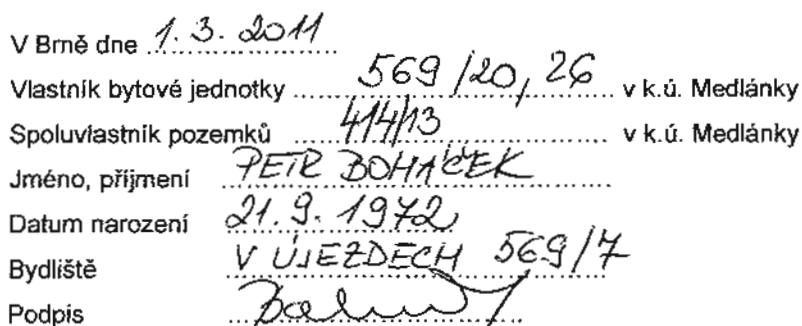 V Brně dne 1. 3. 2011
Vlastník bytové jednotky 569/20, 26 v k.ú. Medlánky
Spoluvlastník pozemků 414/13 v k.ú. Medlánky
Jméno, příjmení PETR BOHÁČEK
Datum narození 21. 9. 1972
Bydliště V ÚJEZDECH 569/7
Podpis